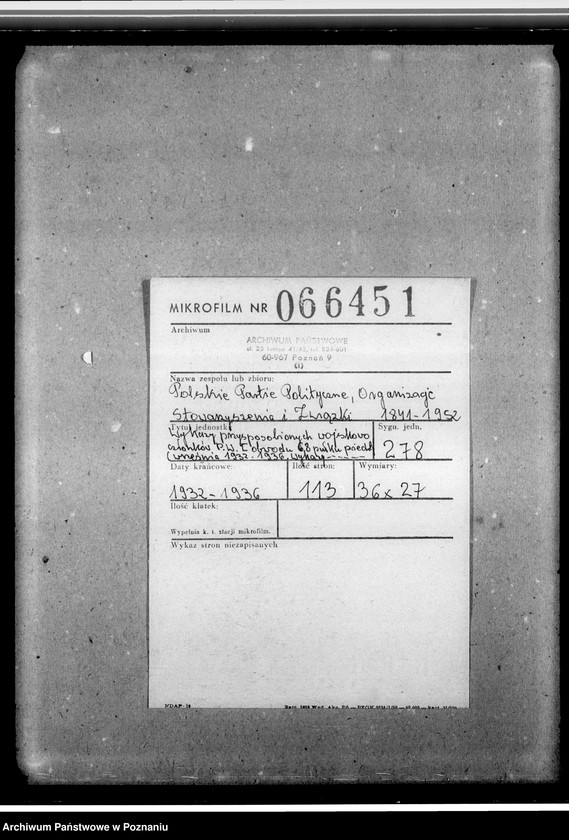 MIKROFILM NR 066451
Archiwum
ARCHIWUM PAŃSTWOWE
60-967 Poznań 9
(1)
Nazwa zespołu lub zbioru:
Polskie Partie Polityczne, Organizacje
Stowarzyszenia i Związki 1841-1952
Tytuł jednostki Sygn. jedn.
Wykazy przysposobionych wojskowo
członków P.W. Obwodu 68 pułku piech.
(Września 1932-1936, wykazy 278
Daty krańcowe: Ilość stron: Wymiary:
1932-1936 113 36 x 27
Ilość klatek:
Wypełnia k. t. stacji mikrofilm.
Wykaz stron niezapisanych
NDAP
Archiwum Państwowe w Poznaniu